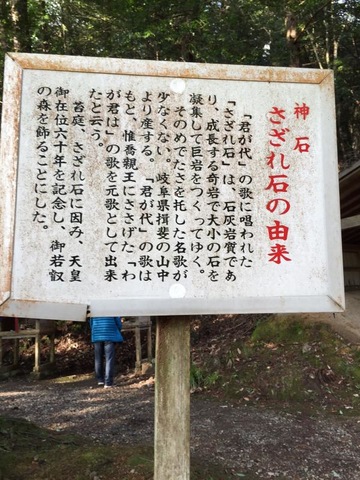 神石
さざれ石の由来
「君が代」の歌に唱われた
「さざれ石」は、石灰岩質であ
り、成長する奇岩で大小の石を
凝集して巨岩をつくってゆく。
そのめでたさを托した名歌が
少なくない。岐阜県揖斐の山中
より産する。「君が代」の歌は
もと、惟喬親王にささげた「わ
が君は」の歌を元歌として出来
たと云う。
苔庭、さざれ石に因み、天皇
御在位六十年を記念し、御若叡
の森を飾ることにした。